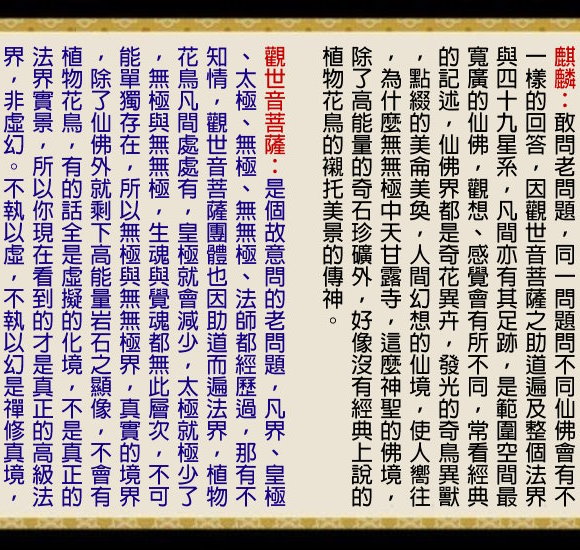 麒麟：敢問老問題，同一問題問不同仙佛會有不
一樣的回答，因觀世音菩薩之助道遍及整個法界
與四十九星系，凡間亦有其足跡，是範圍空間最
寬廣的仙佛，觀想、感覺會有所不同，常看經典
的記述，仙佛界都是奇花異卉，發光的奇鳥異獸
，點綴的美侖美奐，人間幻想的仙境，使人嚮往
，為什麼無無極中天甘露寺，這麼神聖的佛境，
除了高能量的奇石珍礦外，好像沒有經典上說的
植物花鳥的襯托美景的傳神。
觀世音菩薩：是個故意問的老問題，凡界、皇極
、太極、無極、無無極、法師都經歷過，那有不
知情，觀世音菩薩團體也因助道而遍法界，植物
花鳥凡間處處有，皇極就會減少，太極就極少了
，無極與無無極，生魂與覺魂都無此層次，不可
能單獨存在，所以無極與無無極界，真實的境界
，除了仙佛外就剩下高能量岩石之顯像，不會有
植物花鳥，有的話全是虛擬的化境，不是真正的
法界實景，所以你現在看到的才是真正的高級法
界，非虛幻。不執以虛，不執以幻是禪修真境，